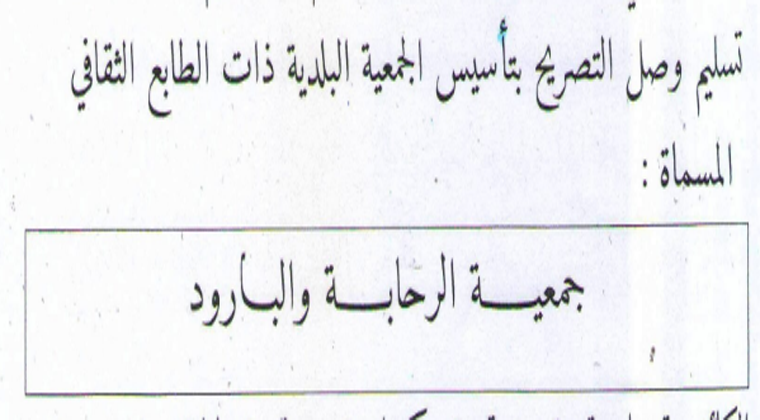 تسليم وصل التصريح بتأسيس الجمعية البلدية ذات الطابع الثقافي
المسماة :
جمعيـــة الرحابـــة والبـارود